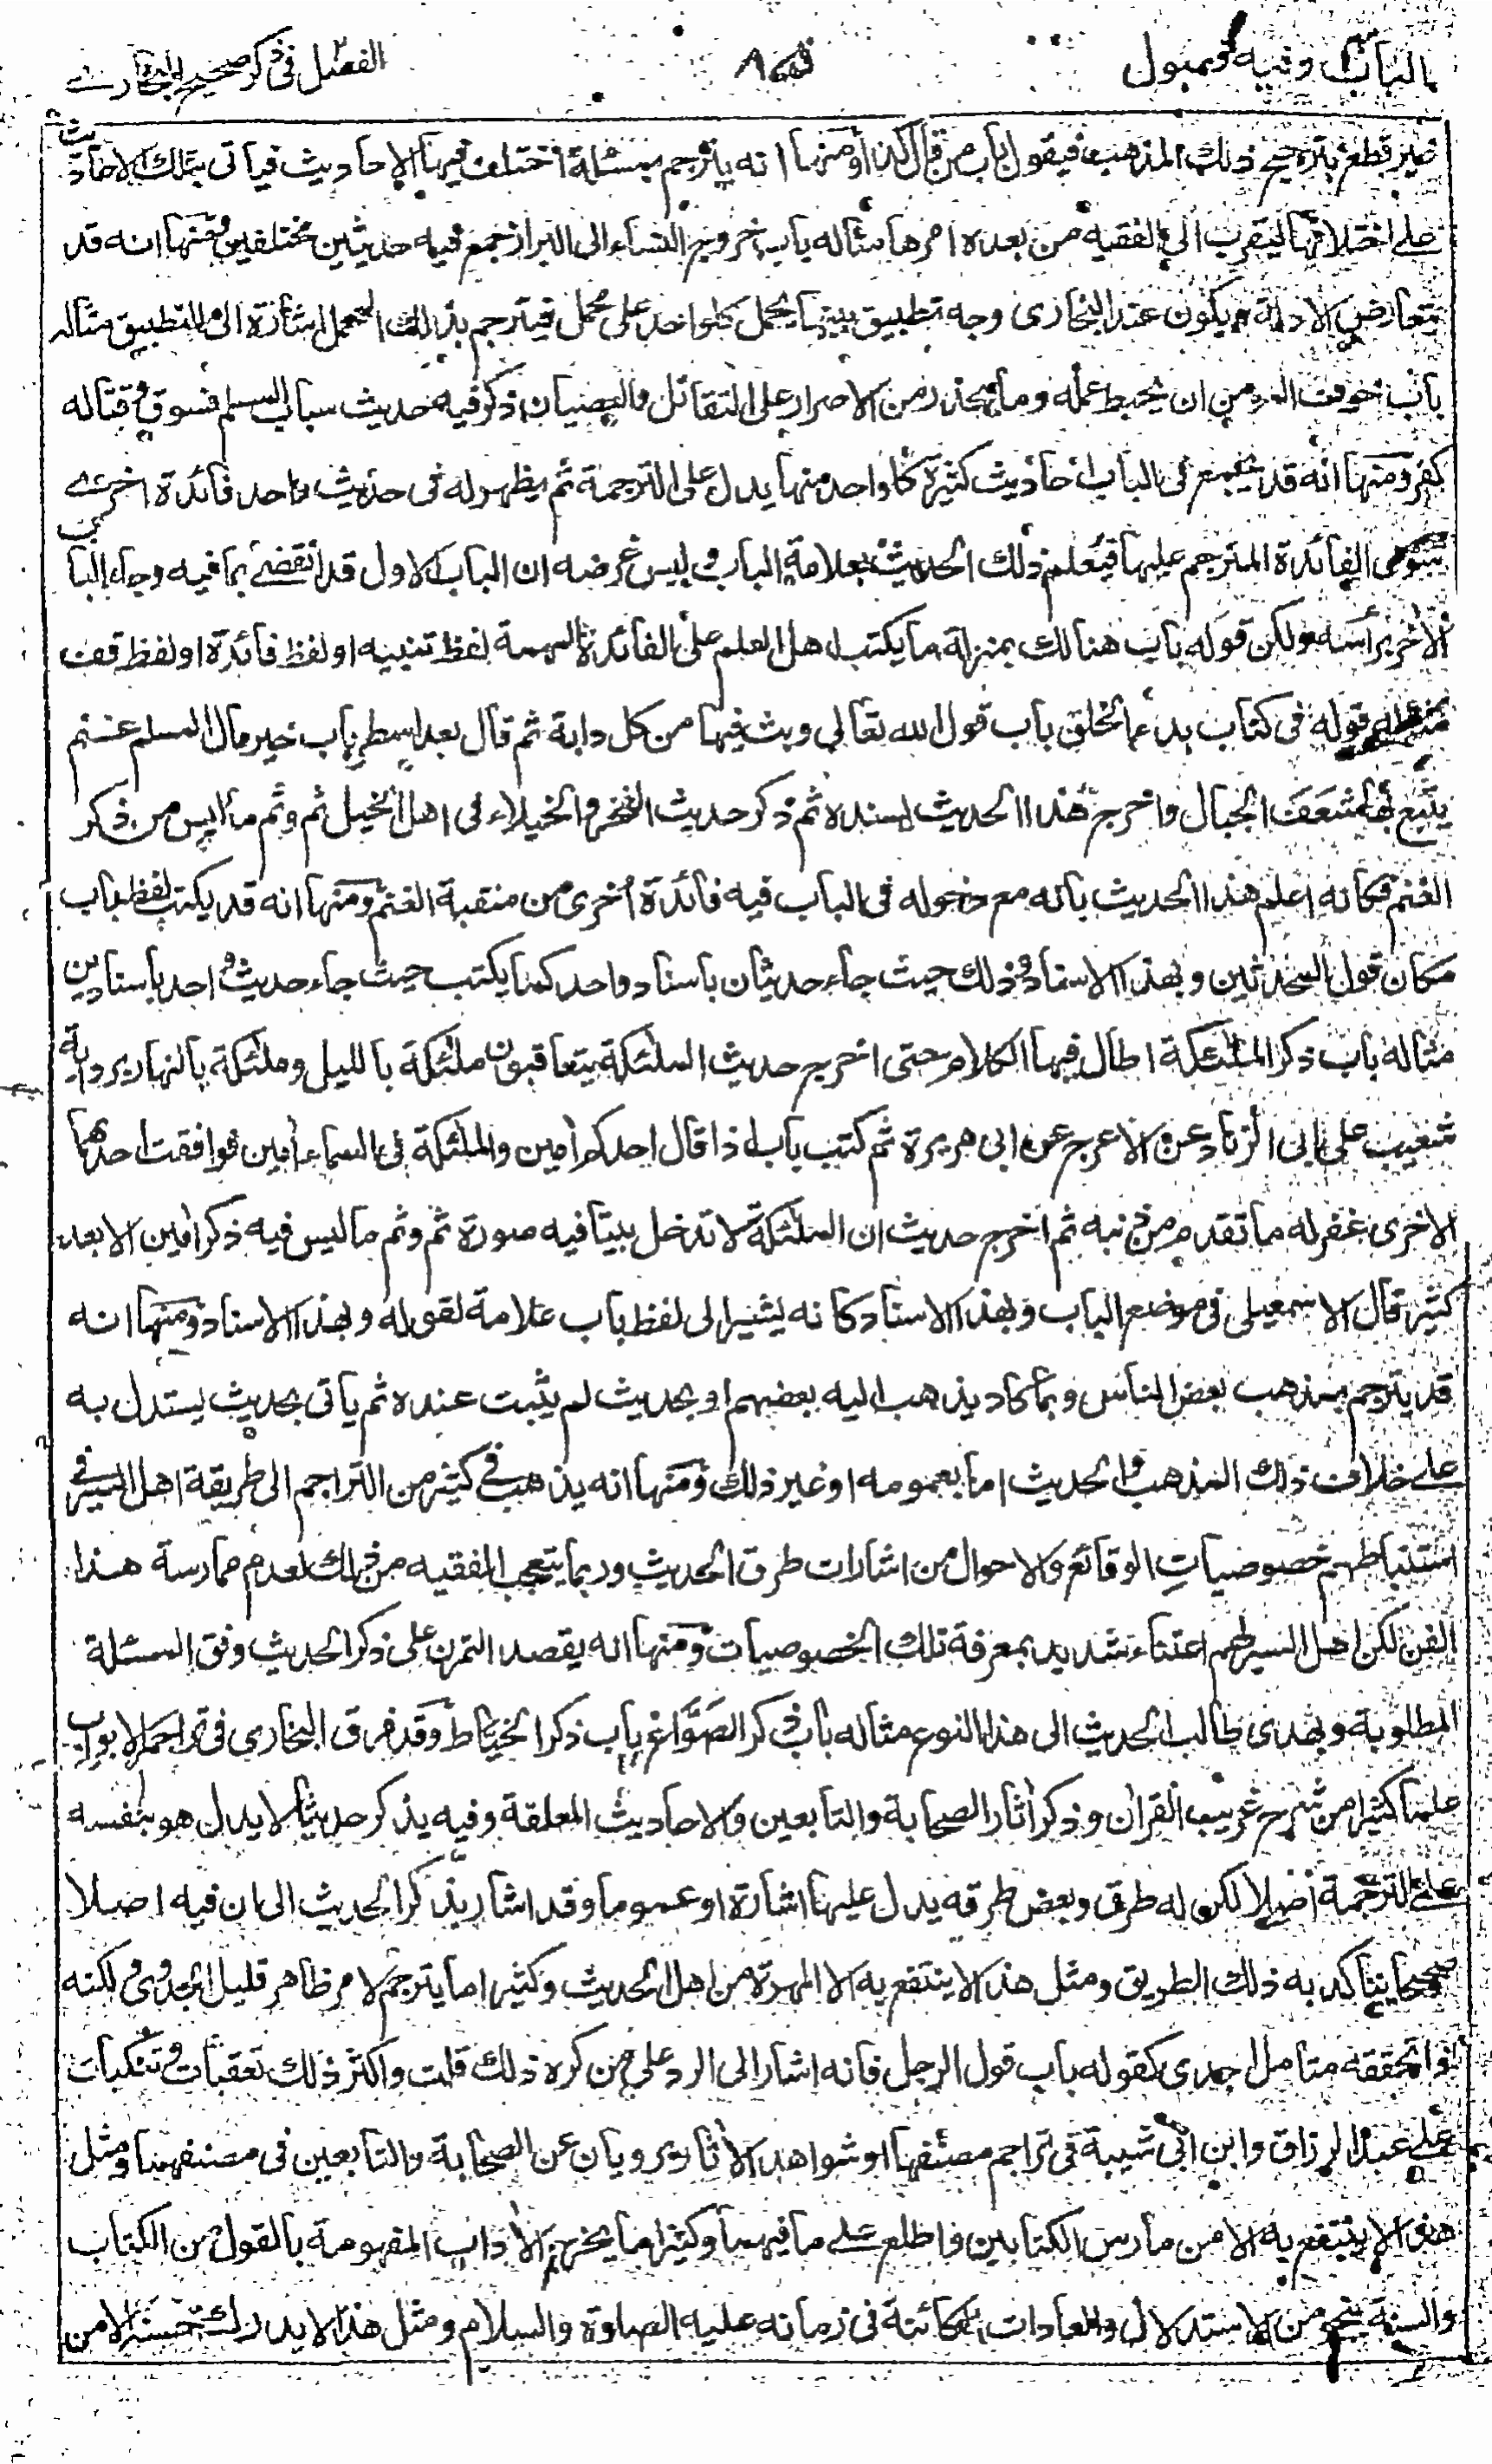 الباب وفيه فصول
الفصل في ذكر صحيح البخاري
غير قطع بترجيح ذلك المذهب فيقول باب من قال كذا ومنها انه يترجم بمسئلة اختلف فيها الاحاديث فياتى بتلك الاحاديث
على اختلافها ليقرب الى الفقيه من بعده امرها مثاله باب خروج النساء الى البراز جمع فيه حديثين مختلفين ومنها انه قد
يتعارض الادلة ويكون عند البخارى وجه تطبيق بينها يحمل كل واحد على محمل فيترجم بذلك المحمل اشارة الى التطبيق مثاله
باب خوف المومن ان يحبط عمله وما يحذر من الاصرار على التقاتل والعصيان ذكر فيه حديث سباب المسلم فسوق وقتاله
كفر ومنها انه قد يجمع فى الباب احاديث كثيرة كل واحد منها يدل على الترجمة ثم يظهر له فى حديث واحد فائدة اخرى
سوى الفائدة المترجم عليها فيعلم ذلك الحديث بعلامة الباب وليس غرضه ان الباب الاول قد انقضى بما فيه وجاء الباب
الاخر براسه ولكن قوله باب هنالك بمنزلة ما يكتب اهل العلم على الفائدة المهمة لفظ تنبيه او لفظ فائدة او لفظ قف
قوله فى كتاب بدء الخلق باب قول الله تعالى وبث فيها من كل دابة ثم قال بعد اسطر باب خير مال المسلم غنم
يتبع بها شعف الجبال واخرج هذا الحديث بسنده ثم ذكر حديث الفخر والخيلاء فى اهل الخيل ثم وثم ما ليس من ذكر
الغنم فكانه اعلم هذا الحديث بانه مع دخوله فى الباب فيه فائدة اخرى من منقبة الغنم ومنها انه قد يكتب لفظ باب
مكان قول المحدثين وبهذا الاسناد وذلك حيث جاء حديثان باسناد واحد كما يكتب حيث جاء حديث واحد باسنادين
مثاله باب ذكر الملئكة اطال فيها الكلام حتى اخرج حديث الملئكة يتعاقبون ملئكة بالليل وملئكة بالنهار برواية
شعيب على ابى الزناد عن الاعرج عن ابى هريرة ثم كتب باب اذا قال احدكم امين والملئكة فى السماء امين فوافقت احدهما
الاخرى غفر له ما تقدم من ذنبه ثم اخرج حديث ان الملئكة لا تدخل بيتا فيه صورة ثم وثم ما ليس فيه ذكر امين الا بعد
كثير قال الاسمعيلى فى موضع الباب وبهذا الاسناد كانه يشير الى لفظ باب علامة لقوله وبهذا الاسناد ومنها انه
قد يترجم بمذهب بعض الناس وبما كاد يذهب اليه بعضهم او بحديث لم يثبت عنده ثم ياتى بحديث يستدل به
على خلاف ذلك المذهب والحديث اما بعمومه او غير ذلك ومنها انه يذهب فى كثير من التراجم الى طريقة اهل السير فى
استنباطهم خصوصيات الوقائع والاحوال من اشارات طرق الحديث وربما يتعجب الفقيه من ذلك لعدم ممارسة هذا
الفن لكن اهل السير لهم اعتناء شديد بمعرفة تلك الخصوصيات ومنها انه يقصد التمرن على ذكر الحديث وفق المسئلة
المطلوبة ويهدى طالب الحديث الى هذا النوع مثاله باب ذكر الصواغ باب ذكر الخياط وقد فرق البخارى فى تراجم الابواب
علما كثيرا من شرح غريب القران وذكر اثار الصحابة والتابعين والاحاديث المعلقة وفيه يذكر حديثا لا يدل هو بنفسه
على الترجمة اصلا لكن له طرق وبعض طرقه يدل عليها اشارة او عموما وقد اشار بذكر الحديث الى ان فيه اصلا
صحيحا يتاكد به ذلك الطريق ومثل هذا لا ينتفع به الا المهرة من اهل الحديث وكثيرا ما يترجم لامر ظاهر قليل الجدوى ولكنه
اذا تحققه متامل اجدى كقوله باب قول الرجل فانه اشار الى الرد على من كره ذلك قلت واكثر ذلك تعقبات وتنكيات
على عبد الرزاق وابن ابى شيبة فى تراجم مصنفها او شواهد الاثار يرويان عن الصحابة والتابعين فى مصنفهما ومثل
هذا لا ينتفع به الا من مارس الكتابين واطلع على ما فيهما وكثيرا ما يخرج الاداب المفهومة بالقول من الكتاب
والسنة بنحو من الاستدلال والعادات الكائنة فى زمانه عليه الصلوة والسلام ومثل هذا لا يدرك حسنه الا من